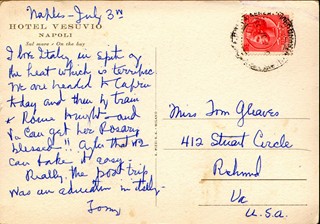 Naples - July 3rd
HOTEL VESUVIO
NAPOLI
Sul mare - On the bay
I love Italy in spite of
the heat which is terrific.
We are headed to Capri
today and then by train
Rome tonight - and
can get her Rosary
blessed!! After that we
can take it easy.
Really, the post trip
was an education in itself -
Tom
Miss Tom Gleaves
412 Stuart Circle
Richmd
Va
U.S.A.